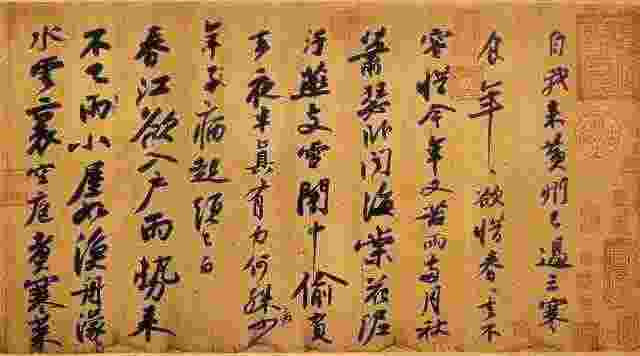 自我來黃州已過三寒
食年〻欲惜春〻去不
容惜今年又苦雨兩月秋
蕭瑟卧聞海棠花泥
汙燕支雪闇中偷負
去夜半真有力何殊少病
年子病起頭已白
春江欲入戶雨勢來
不已雨小屋如漁舟濛〻
水雲裏空庖煮寒菜